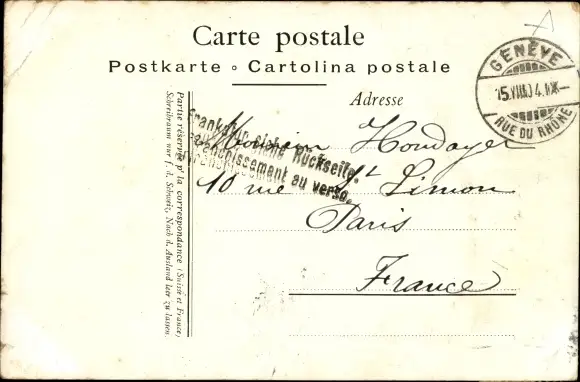 Carte postale
Postkarte ∘ Cartolina postale
Adresse
GENÈVE
RUE DU RHÔNE
Partie réservée p' la correspondance (Suisse et France)
Schreibraum nur f. d. Schweiz, Nach d. Ausland leer zu lassen.
Frankatur siehe Rückseite.
Affranchissement au verso.
Monsieur Houdayer
10 rue St Simon
Paris
France